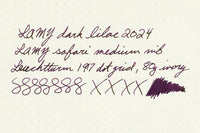 LAMY dark lilac 2024
LAMY safari medium nib
Leuchtturm 1917 dot grid, 80g ivory
8888888 XXXX